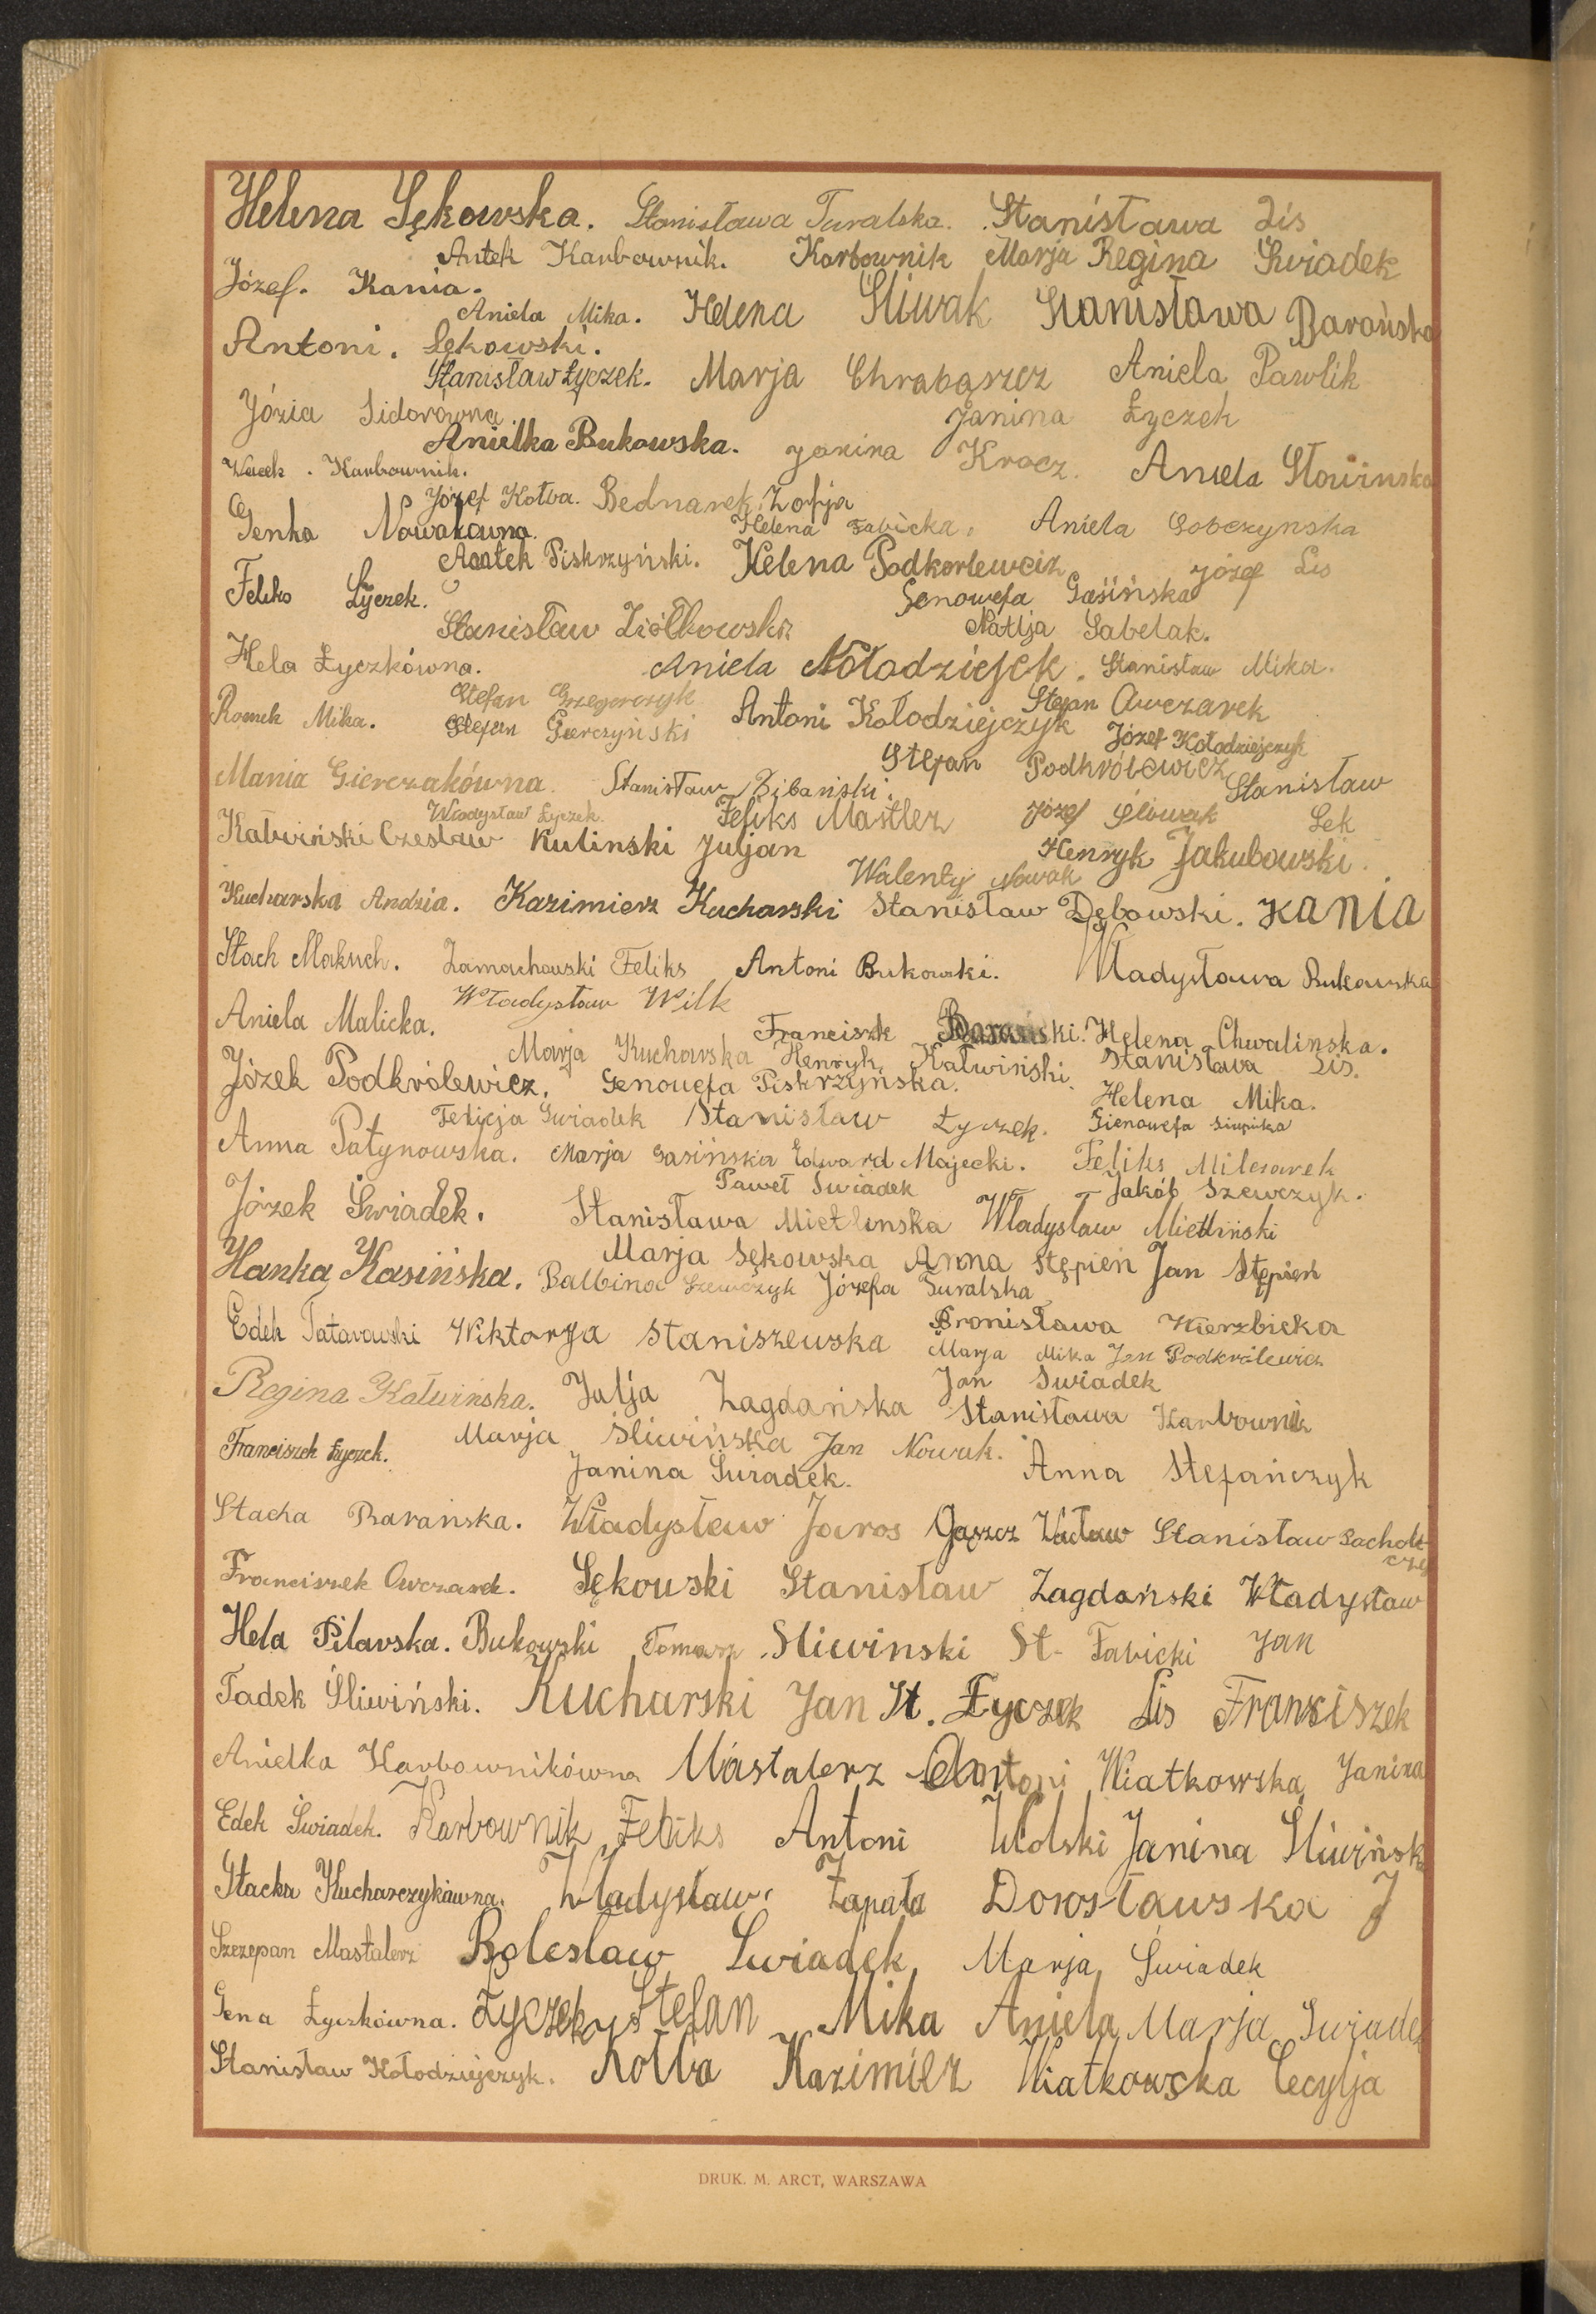 Helena Sękowska. Stanisława Turalska. Stanisława Lis
Antek Karbownik. Karbownik Marja Regina Świadek
Józef. Kania.
Aniela Mika. Helena Śliwak Stanisława Barańska
Antoni. Sękowski.
Stanisław Łyczek. Marja Chrabąszcz Aniela Pawlik
Józia Sidorówna. Janina Łyczek
Anielka Bukowska. Janina Krocz. Aniela Słowinska
Wacek. Karbownik.
Józef Kotba. Bednarek Zofja
Genka Nowakówna. Helena Fabicka. Aniela Sobczynska
Piskrzyński. Helena Podkorlewciz Józef Lis
Felko Łyczek. Genowefa Gasińska
Stanisław Ziółkowski Natlja Sabelak.
Hela Łyczkówna. Aniela Kołodziejek. Stanisław Mika.
Stefan Grzegorczyk Stefan Owczarek
Romek Mika. Stefan Gierczyński Antoni Kołodziejczyk Józef Kołodziejczyk
Stefan Podkrólewicz
Mania Gierczakówna. Stanisław Bibański. Stanisław
Władysław Łyczek. Feliks Mastlerz Józef Śliwak Sek
Kałwiński Czesław Kulinski Juljan Henryk Jakubowski.
Walenty Nowak
Kucharska Andzia. Kazimierz Kucharski Stanisław Dębowski. Kania
Stach Makuch. Zamachowski Feliks Antoni Bukowski. Władysława Bukowska
Władysław Wilk
Aniela Malicka. Franciszk Barański. Helena Chwalinska.
Marja Kucharska Henryk Kałwiński. Stanisława Lis.
Józek Podkrólewicz. Genowefa Piskrzyńska. Helena Mika.
Felicja Świadek Stanisław Łyczek. Gienowefa
Anna Patynowska. Marja Gasińska Edward Majecki. Feliks Milczarek
Paweł Świadek Jakób Szewczyk.
Józek Świadek. Stanisława Mietlinska Władysław Mietliński
Marja Sękowska Anna Stępień Jan Stępień
Hanka Kasińska. Balbina Szewczyk Józefa Turalska
Bronisława Wierzbicka
Edek Tatarowski Wiktorja Staniszewska Marja Mika Jan Podkrólewicz
Jan Świadek
Regina Kałwińska. Julja Zagdańska Stanisława Karbownik
Marja Śliwińska Jan Nowak.
Franciszek Łyczek. Janina Świadek. Anna Stefańczyk
Stacha Barańska. Władysław Jaros Gąszcz Wacław Stanisław Pacholczyk
Franciszek Owczarek. Sękowski Stanisław Zagdański Władysław
Hela Pilavska. Bukowski Tomasz Sliwinski St. Fabicki Jan
Tadek Śliwiński. Kucharski Jan St. Łyczek Lis Franciszek
Anielka Karbownikówna Mastalerz Antoni Wiatkowska Janina
Edek Świadek. Karbownik Feliks Antoni Wolski Janina Śliwińska
Stacha Kucharczykówna. Władysław Zapała Dorosławska J
Szczepan Mastalerz Bolesław Świadek Marja Świadek
Gena Łyczkówna. Łyczek Stefan Mika Aniela Marja Świadek
Stanisław Kołodziejczyk. Kotba Kazimierz Wiatkowska Cecylja
DRUK. M. ARCT, WARSZAWA